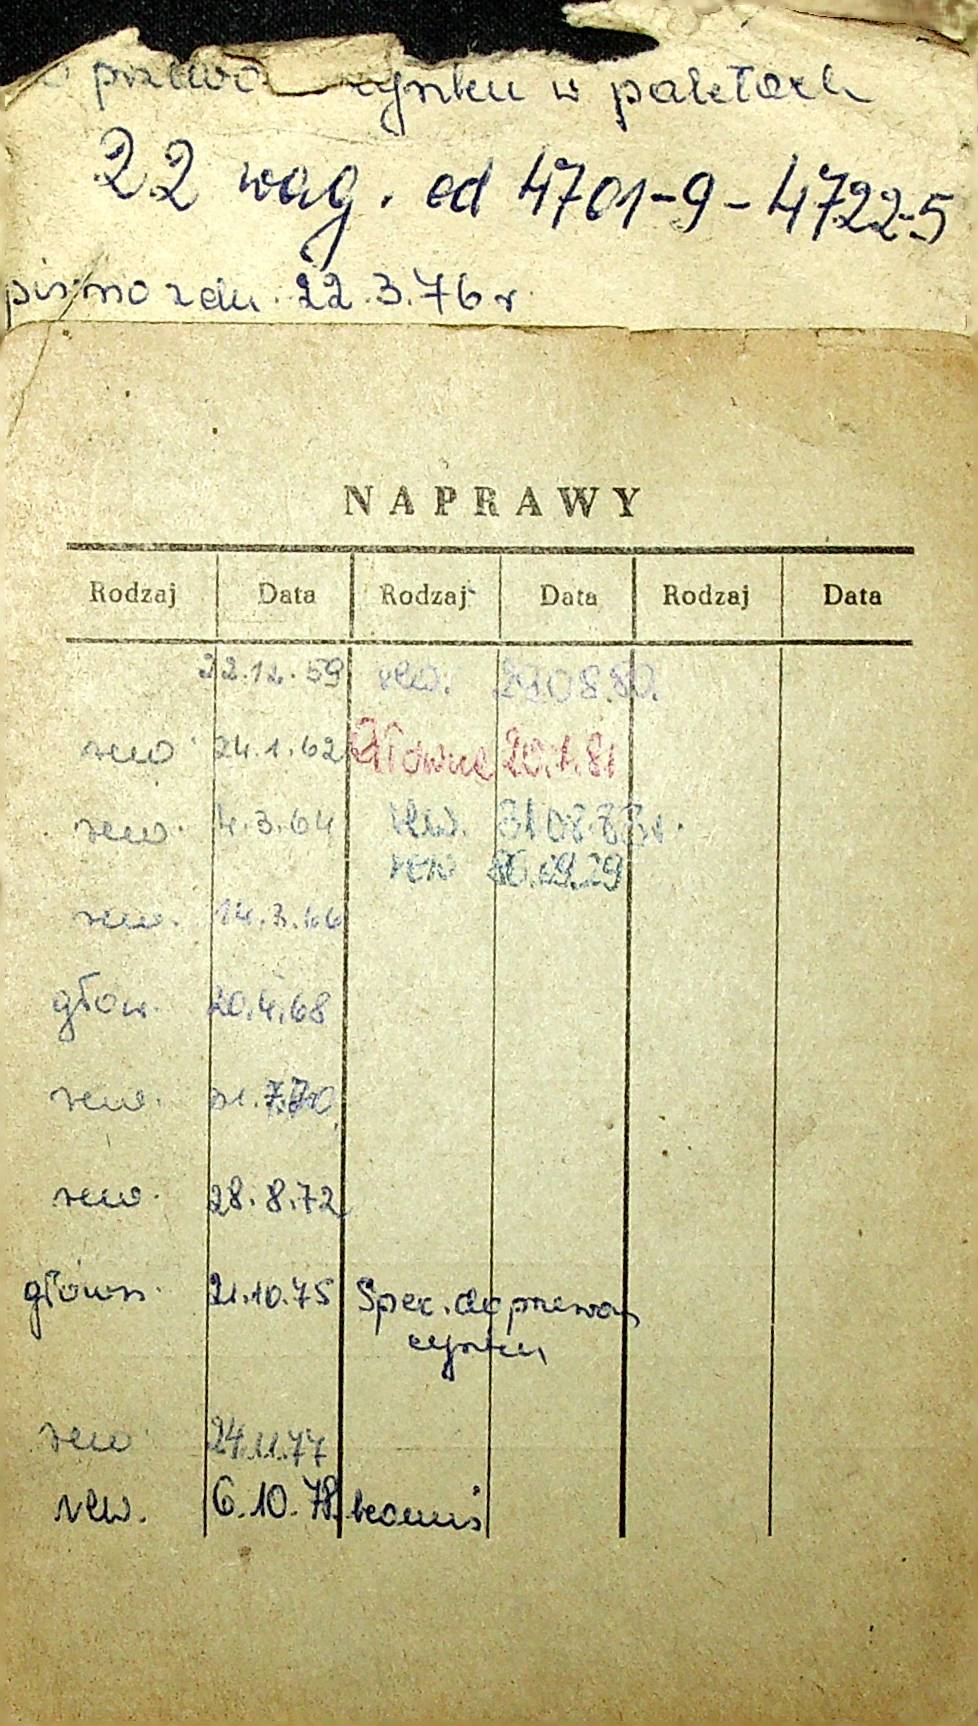 przewo cynku w paletach
22 wag. od 4701-9 - 4722-5
pismo z dn. 22.3.76 r
NAPRAWY
Rodzaj Data Rodzaj Data Rodzaj Data
22.12.59 rew. 29.08.80.
rew 24.1.62 Główna 20.1.81
rew. 4.3.64 rew. 31.08.83r.
rew 86.09.29
rew. 14.3.66
głów. 20.4.68
rew. 7.70
rew. 28.8.72
główn. 21.10.75 Spec. do przewozu
cynku
rew 24.11.77
rew. 6.10.78